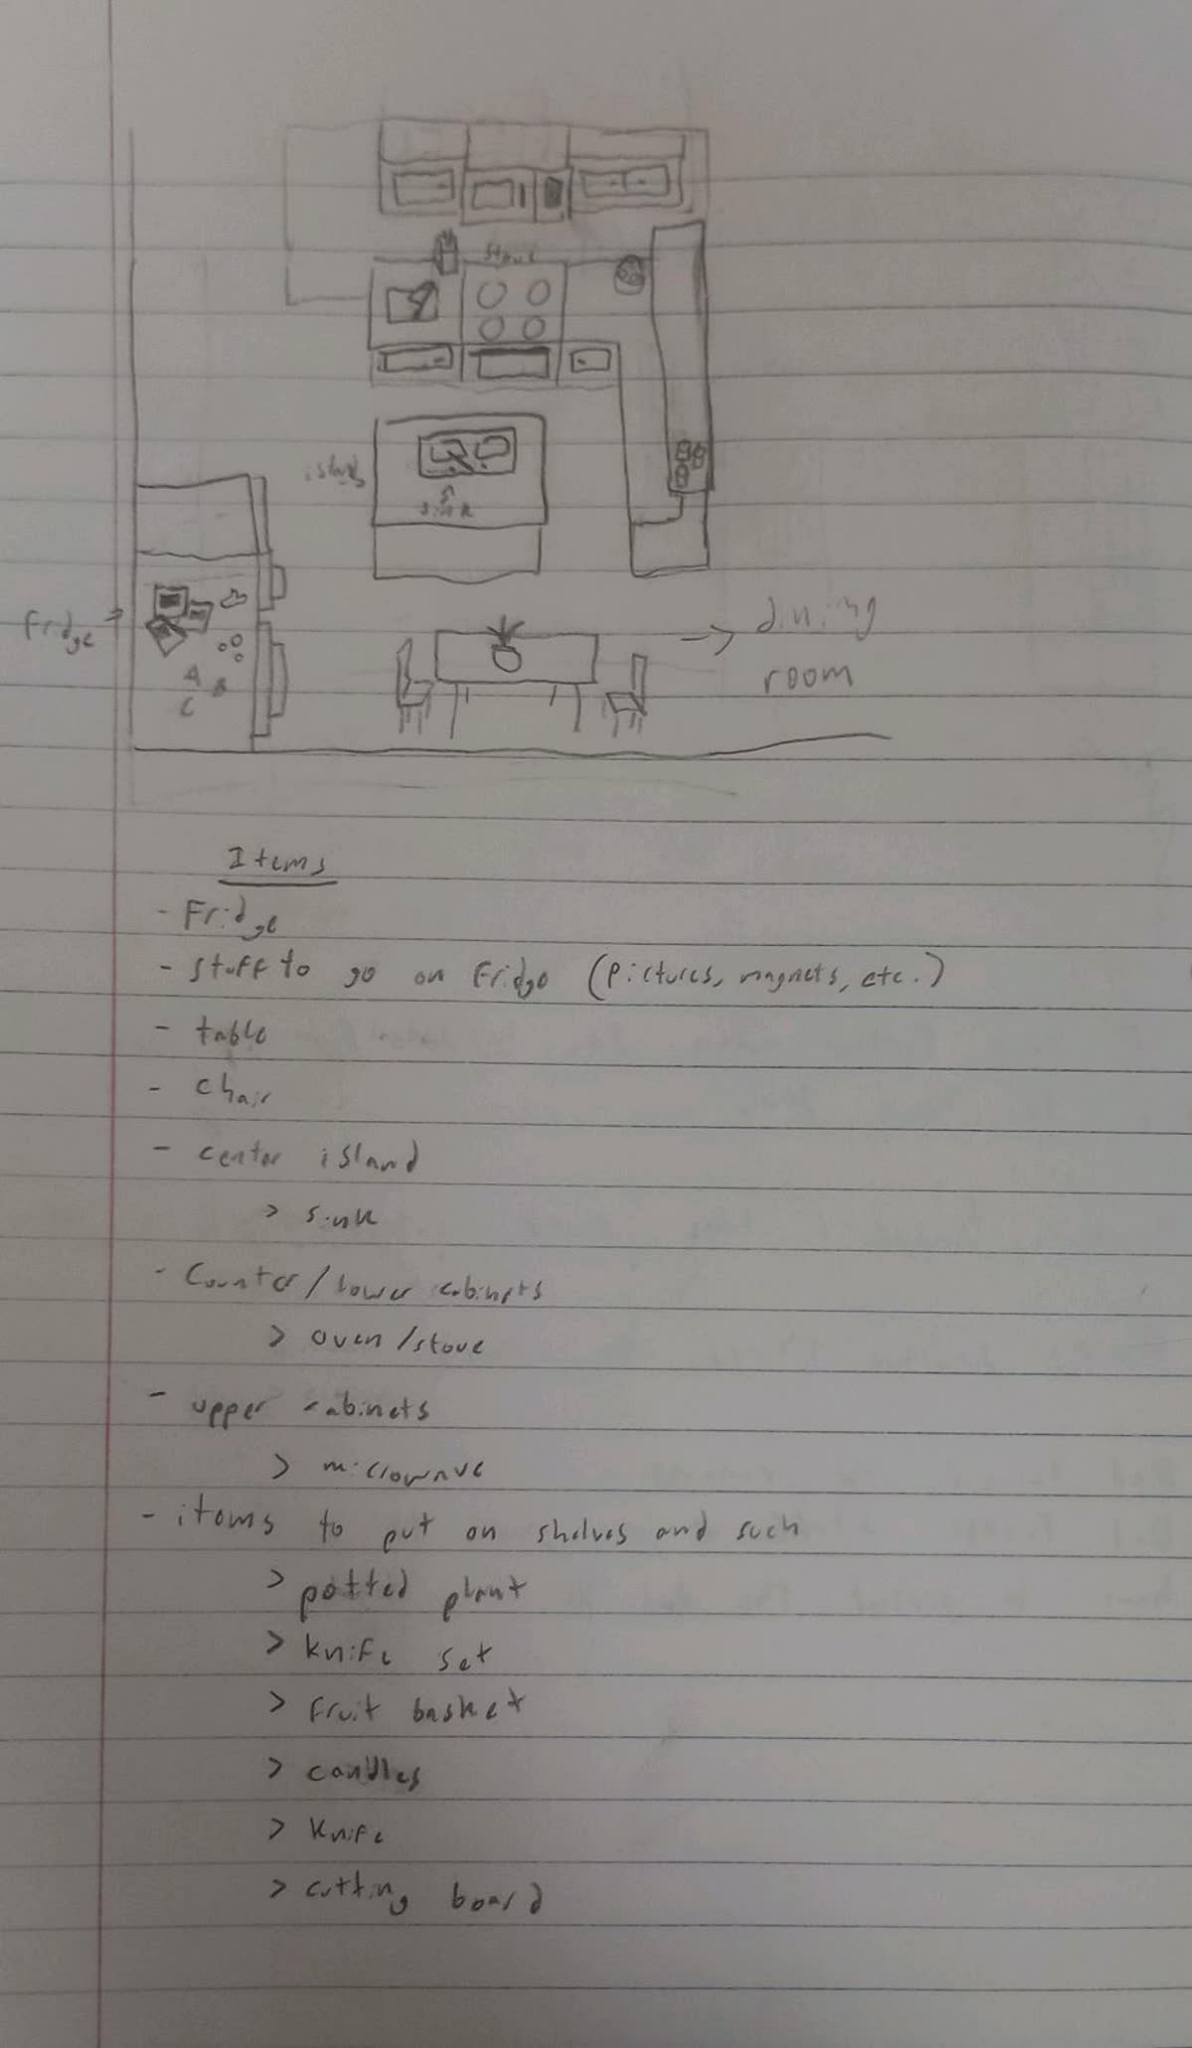 stove
island
sink
Fridge
A
B
C
dining
room
Items
- Fridge
- stuff to go on fridge (pictures, magnets, etc.)
- table
- chair
- center island
> sink
- Counter/lower cabinets
> oven/stove
- upper cabinets
> microwave
- items to put on shelves and such
> potted plant
> knife set
> fruit basket
> candles
> knife
> cutting board